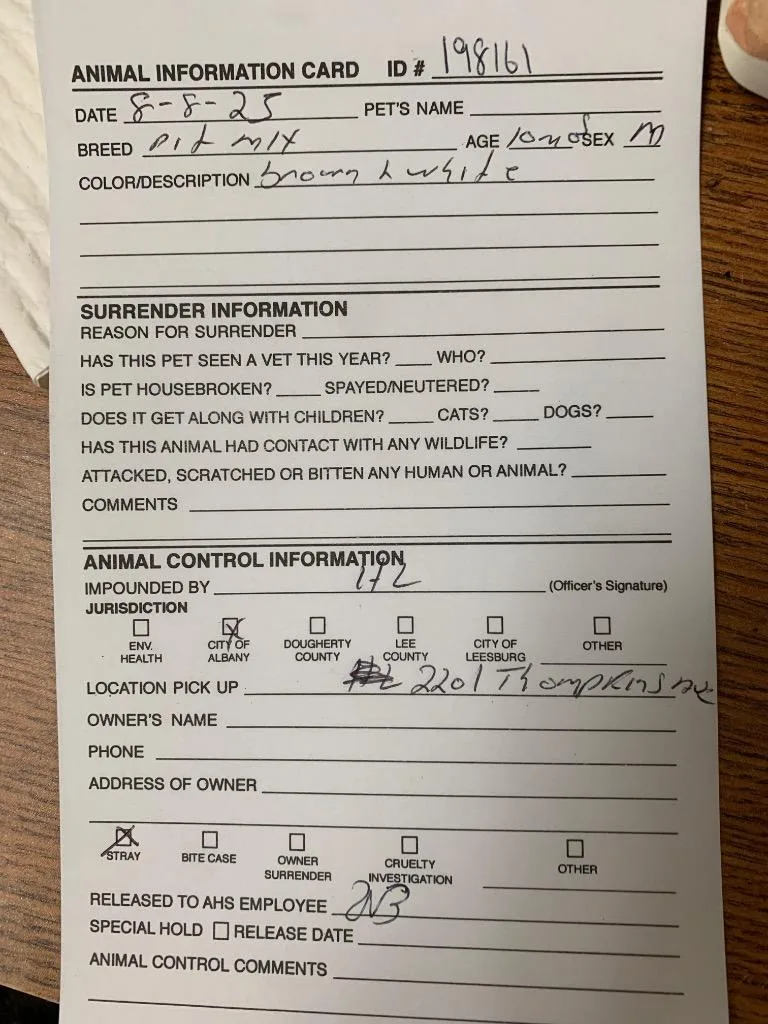 ANIMAL INFORMATION CARD ID # 198161
DATE 8-8-25 PET'S NAME
BREED pit mix AGE 10mos SEX M
COLOR/DESCRIPTION brown & white
SURRENDER INFORMATION
REASON FOR SURRENDER
HAS THIS PET SEEN A VET THIS YEAR? WHO?
IS PET HOUSEBROKEN? SPAYED/NEUTERED?
DOES IT GET ALONG WITH CHILDREN? CATS? DOGS?
HAS THIS ANIMAL HAD CONTACT WITH ANY WILDLIFE?
ATTACKED, SCRATCHED OR BITTEN ANY HUMAN OR ANIMAL?
COMMENTS
ANIMAL CONTROL INFORMATION
IMPOUNDED BY (Officer's Signature)
JURISDICTION
ENV. HEALTH CITY OF ALBANY DOUGHERTY COUNTY LEE COUNTY CITY OF LEESBURG OTHER
LOCATION PICK UP 2201 Thompkins ave
OWNER'S NAME
PHONE
ADDRESS OF OWNER
STRAY BITE CASE OWNER SURRENDER CRUELTY INVESTIGATION OTHER
RELEASED TO AHS EMPLOYEE
SPECIAL HOLD RELEASE DATE
ANIMAL CONTROL COMMENTS